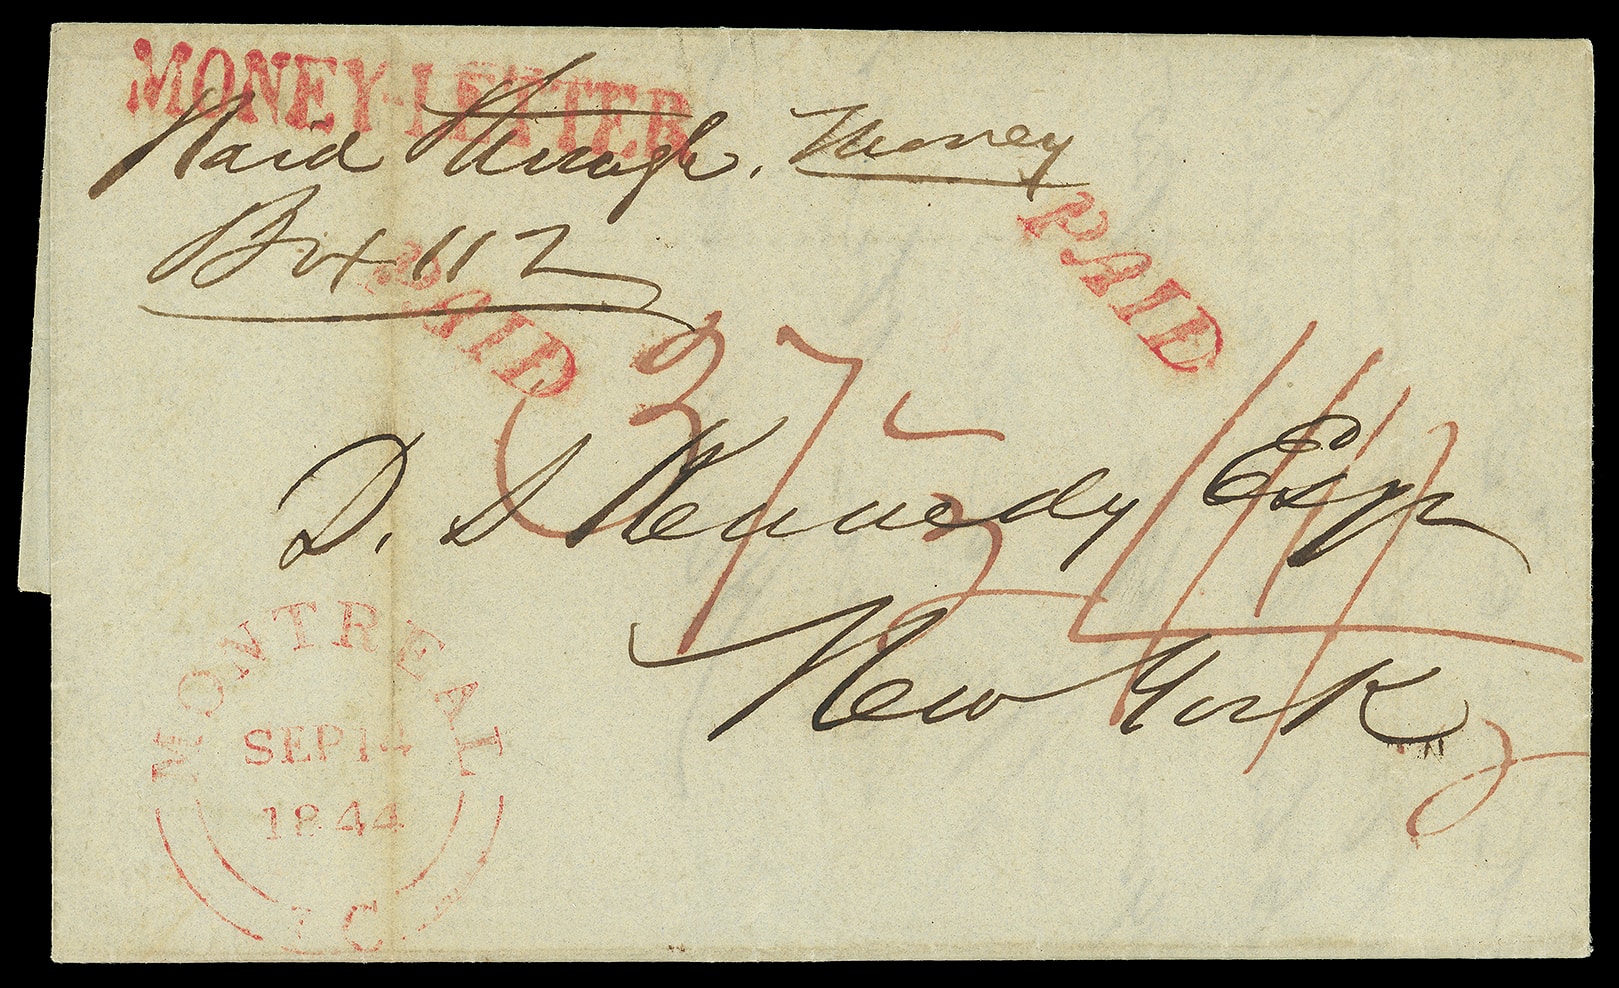 MONEY-LETTER
Paid through. Money
Box 112
PAID
PAID
37
D. S Kennedy Esqr
New York
MONTREAL
SEP 14
1844
L C